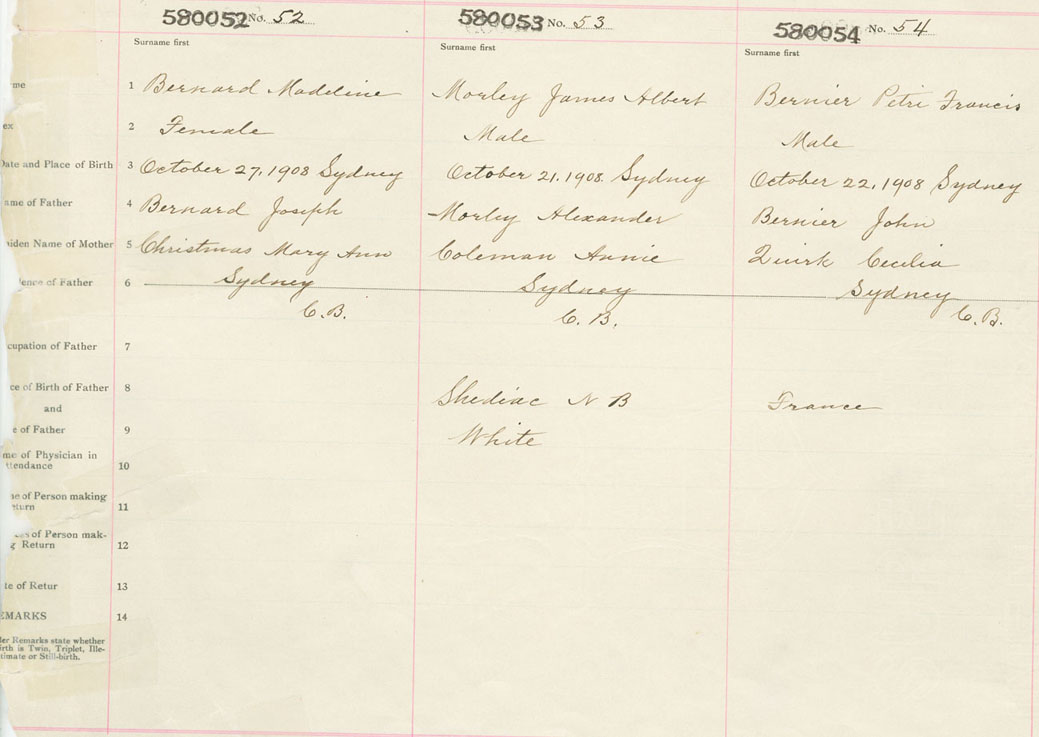 580052 No. 52
580053 No. 53
580054 No. 54
Surname first
Surname first
Surname first
me 1 Bernard Madeline
Morley James Albert
Bernier Petri Francis
ex 2 Female
Male
Male
Date and Place of Birth 3 October 27, 1908 Sydney
October 21, 1908 Sydney
October 22, 1908 Sydney
ame of Father 4 Bernard Joseph
Morley Alexander
Bernier John
aiden Name of Mother 5 Christmas Mary Ann
Coleman Annie
Quirk Cecilia
ence of Father 6 Sydney
Sydney
Sydney
C.B.
C.B.
C.B.
cupation of Father 7
ce of Birth of Father 8
Shediac N B
France
and
e of Father 9
White
me of Physician in
ttendance 10
e of Person making
eturn 11
s of Person mak-
g Return 12
te of Retur 13
EMARKS 14
der Remarks state whether
irth is Twin, Triplet, Ille-
timate or Still-birth.